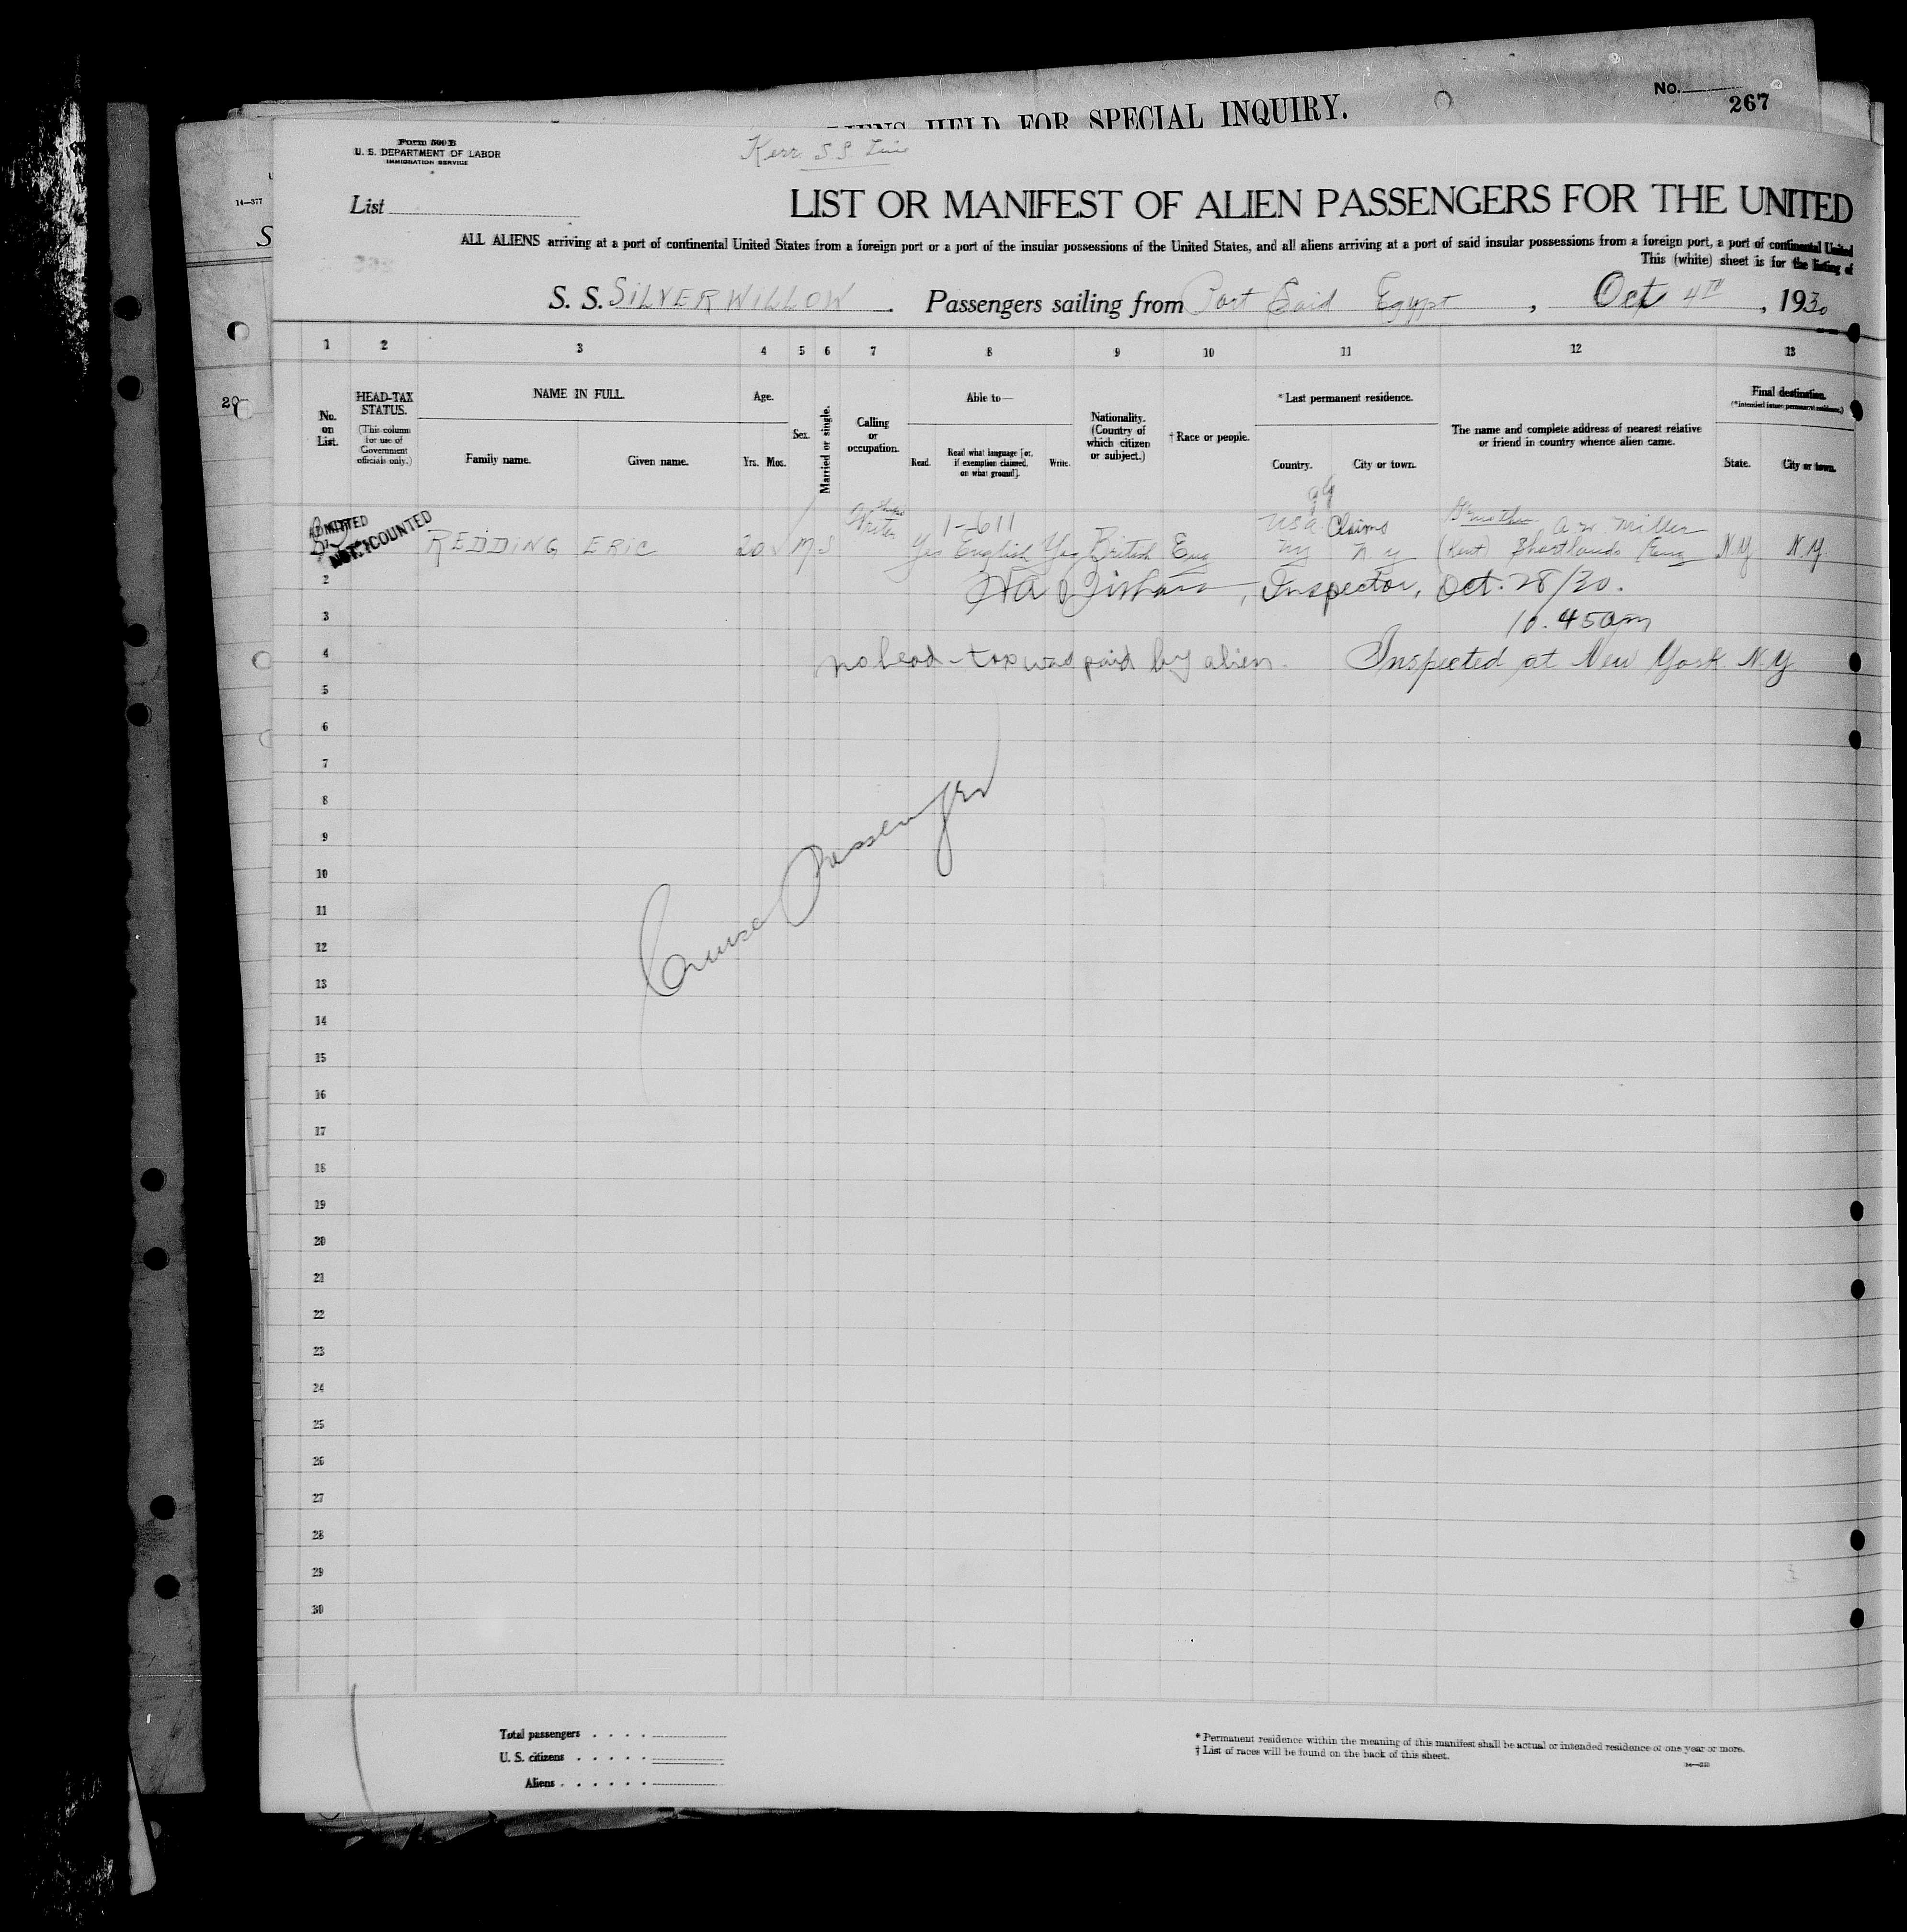 No.
267
ALIENS HELD FOR SPECIAL INQUIRY.
Form 500 B
U. S. DEPARTMENT OF LABOR
IMMIGRATION SERVICE
Kerr S S Line
14—377
List
LIST OR MANIFEST OF ALIEN PASSENGERS FOR THE UNITED
S
ALL ALIENS arriving at a port of continental United States from a foreign port or a port of the insular possessions of the United States, and all aliens arriving at a port of said insular possessions from a foreign port, a port of continental United
This (white) sheet is for the listing of
S. S. SILVERWILLOW. Passengers sailing from Port Said Egypt, Oct 4TH, 1930
1 2 3 4 5 6 7 8 9 10 11 12 13
No. on List.
HEAD-TAX STATUS.
(This column for use of Government officials only.)
NAME IN FULL.
Family name. Given name.
Age.
Yrs. Mos.
Sex.
Married or single.
Calling or occupation.
Able to—
Read. Read what language [or, if exemption claimed, on what ground]. Write.
Nationality. (Country of which citizen or subject.)
† Race or people.
* Last permanent residence.
Country. City or town.
The name and complete address of nearest relative or friend in country whence alien came.
Final destination.
(*Intended future permanent residence.)
State. City or town.
29
ADMITTED
NOT COUNTED
Writer 1-611 USA Claims A W Miller
REDDING ERIC 20 M S Yes English Yes British Eng NY N Y (Kent) Shortlands Eng N.Y. N.Y.
2
Inspector, Oct. 28/30.
3
10.45am
4
no head-tax was paid by alien. Inspected at New York N.Y.
5
6
7
8
9
10
11
12
13
14
15
16
17
18
19
20
21
22
23
24
25
26
27
28
29
30
Cruise Passenger
Total passengers
U. S. citizens
Aliens
* Permanent residence within the meaning of this manifest shall be actual or intended residence of one year or more.
† List of races will be found on the back of this sheet.